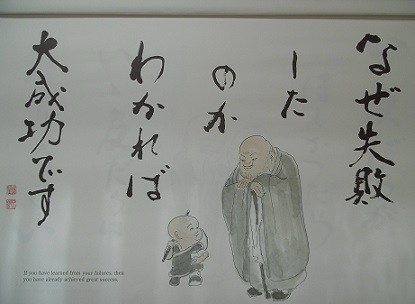 なぜ失敗
した
のか
わかれば
大成功です
If you have learned from your failures, then
you have already achieved great success.